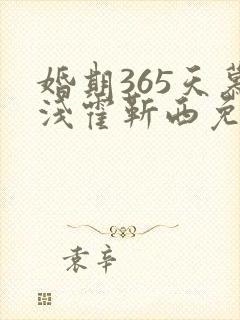 婚期365天慕
浅霍靳西免
袁辛